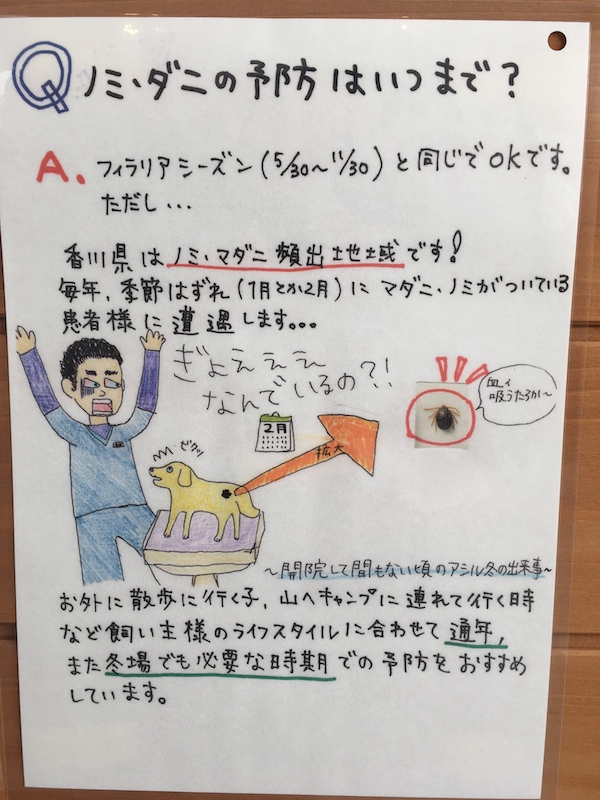 Q ノミ・ダニの予防はいつまで？
A. フィラリアシーズン(5/30〜11/30)と同じでOKです。
ただし...
香川県はノミ・マダニ頻出地域です!
毎年、季節はずれ(1月とか2月)にマダニ・ノミがついている
患者様に遭遇します...
ぎょえぇぇぇ
なんでいるの?!
血ィ
吸うたろか〜
2月
拡大
ビクッ
〜開院して間もない頃のアシル冬の出来事〜
お外に散歩に行く子、山へキャンプに連れて行く時
など飼い主様のライフスタイルに合わせて通年、
また冬場でも必要な時期での予防をおすすめ
しています。